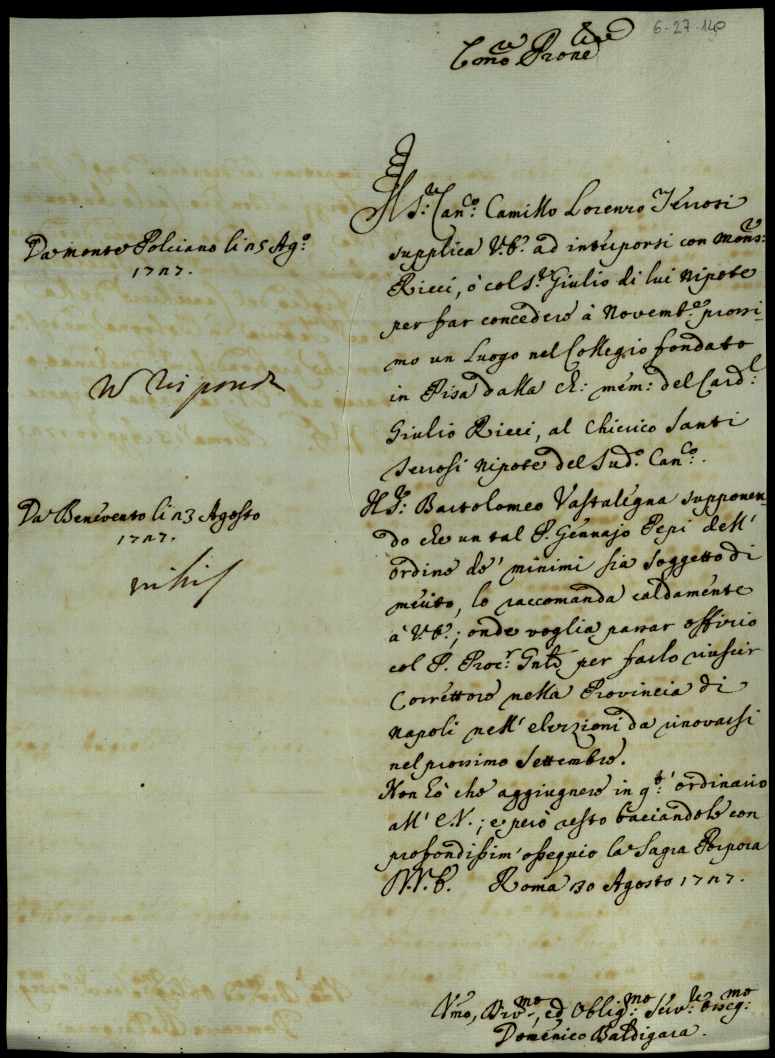 6-27-140
Em̃o Prone
Il S.r Can.co Camillo Lorenzo Terrosi
supplica V.E. ad interporsi con Mons.
Ricci, ò col S.r Giulio di lui Nipote
per far concedere à Novemb.e prossi-
mo un Luogo nel Collegio fondato
in Pisa dalla ch: mem: del Card.l
Giulio Ricci, al Chierico Santi
Terrosi Nipote del Sud.o Can.co.
Da Monte Pulciano li 25 Ag.o
1727.
Il S.r Bartolomeo Vastalegna supponen-
do che un tal P. Gennajo Pepi dell'
ordine de' minimi sia soggetto di
merito, lo raccomanda caldamente
à V.E.; onde voglia passar offizio
col P. Proc.r Gñle per farlo riuscir
Correttore nella Provincia di
Napoli nell' elezzioni da rinovarsi
nel prossimo Settembre.
Da Benevento li 23 Agosto
1727.
nihil
Non hò che aggiugnere in q.to ordinario
all' E.V.; e però resto baciandole con
profondissim' ossequio la Sagra Porpora
D.V.E. Roma 30 Agosto 1727.
Vm̃o, Div.mo, ed Oblig.mo Serv.re osseq.mo
Domenico Baldigara.